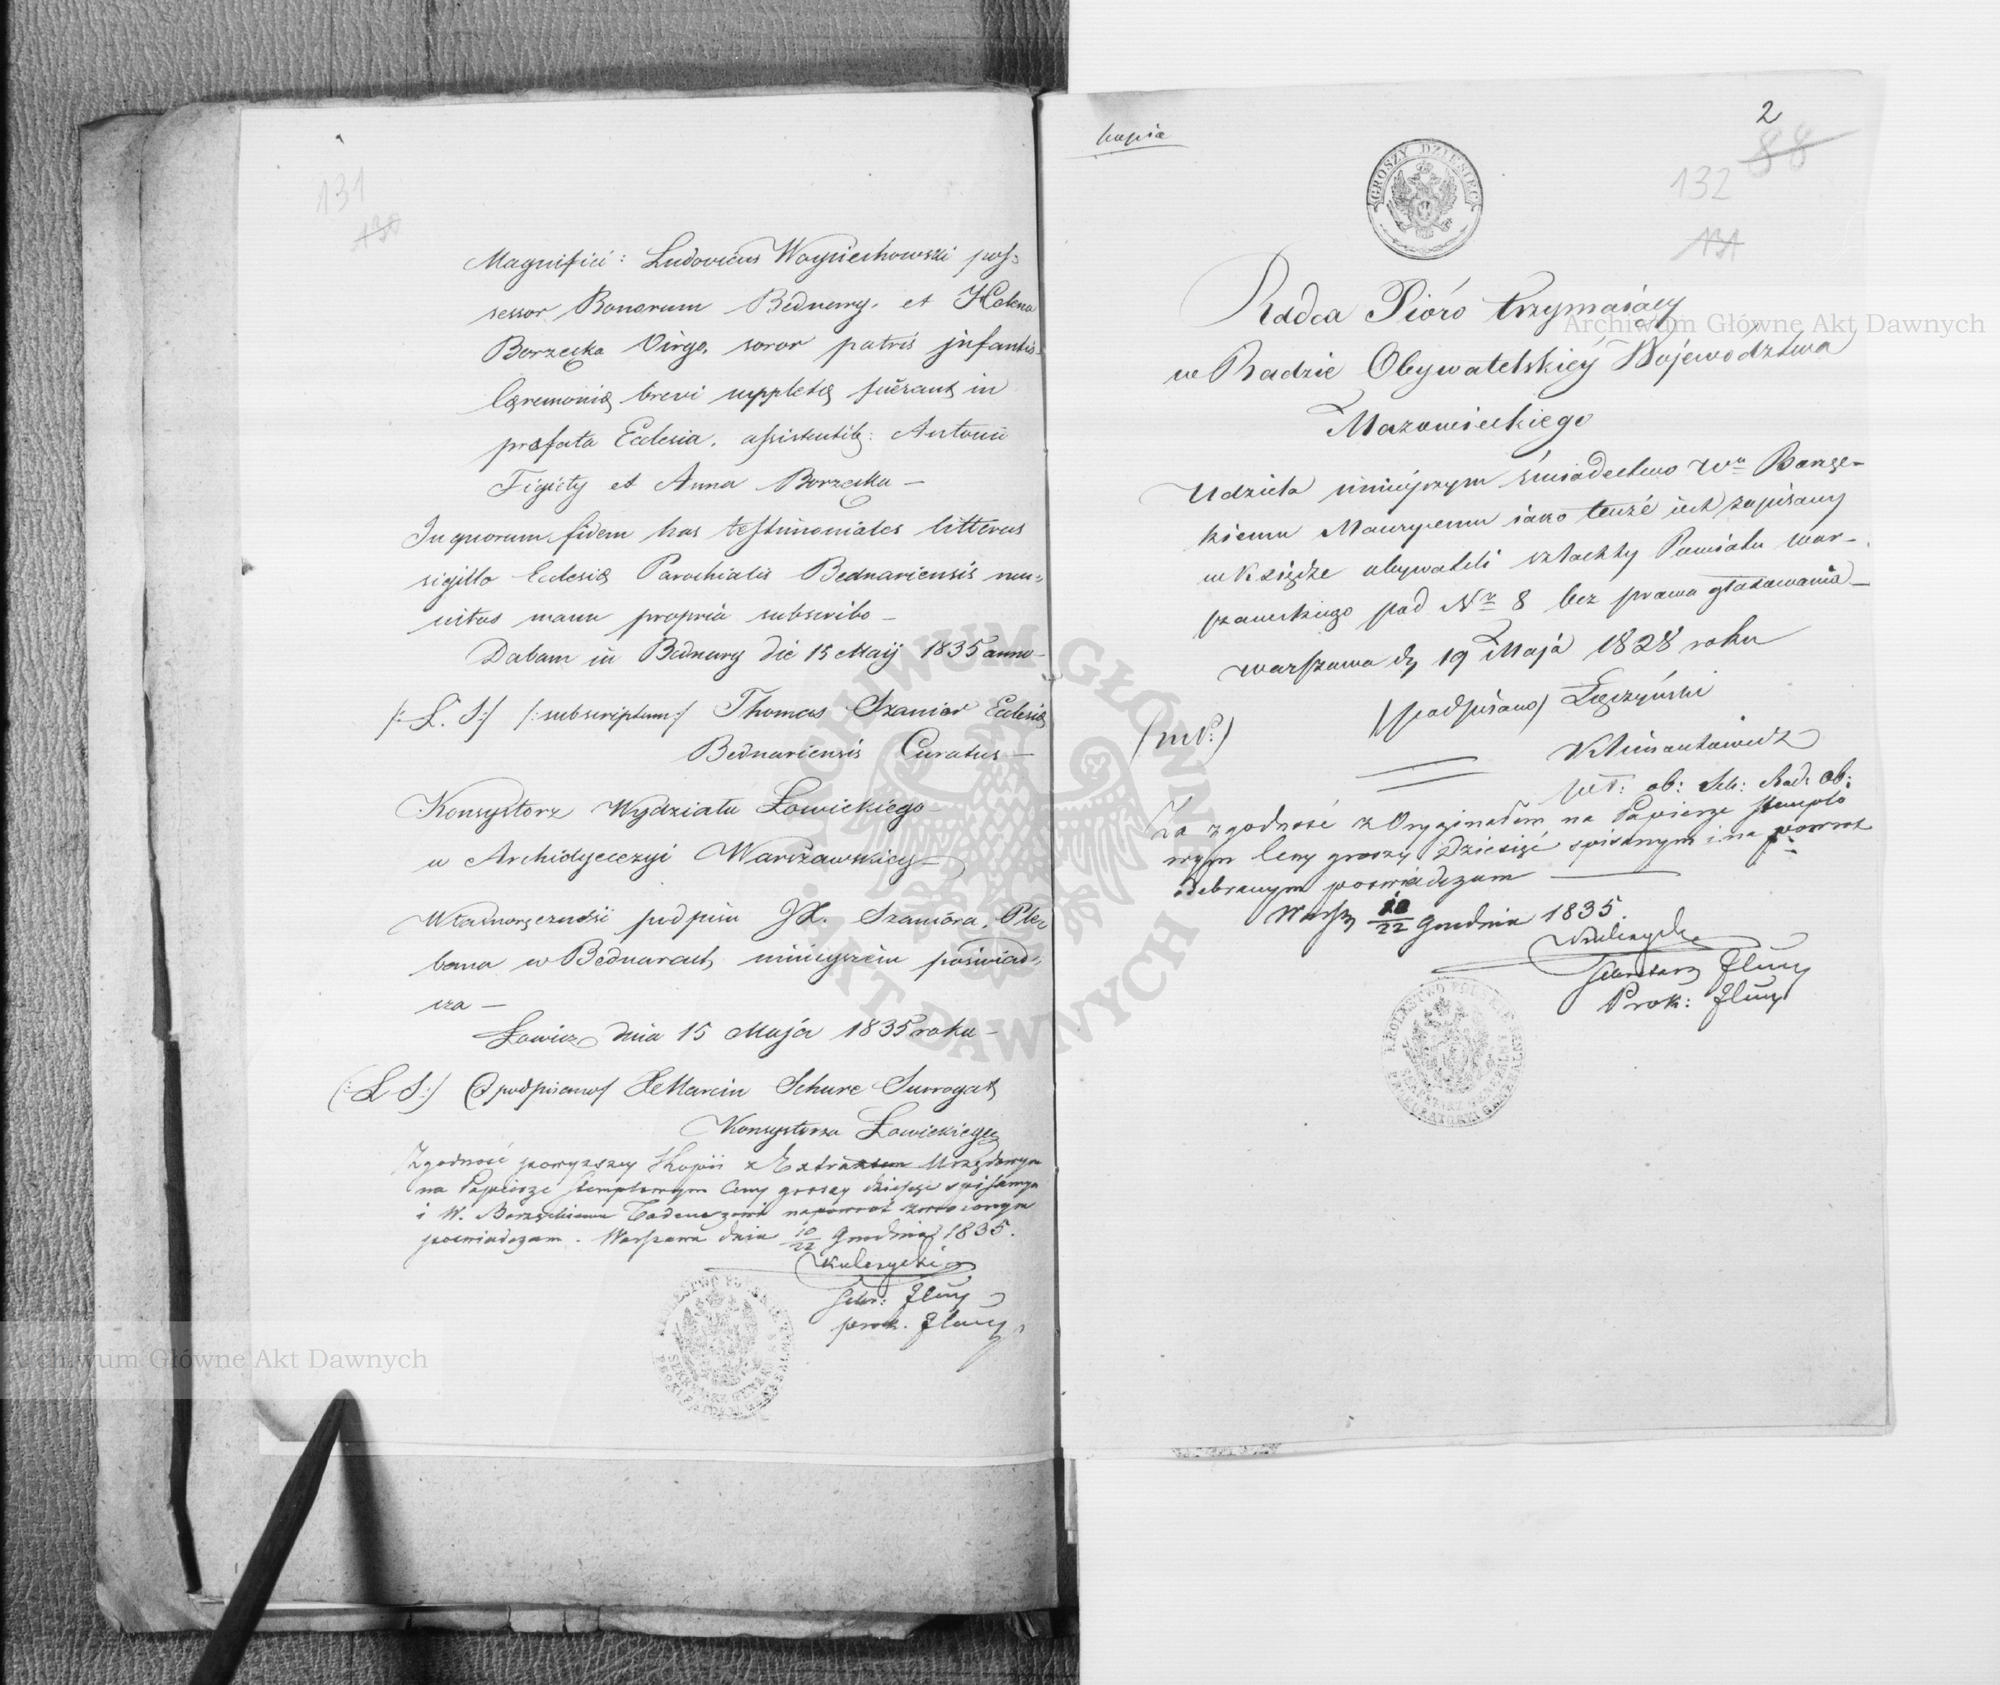 131
130
Magnifici: Ludovicus Woyciechowski pos=
sessor Bonorum Bednary, et Helena
Borzęcka Virgo, soror patris infantis.
Cæremoniæ brevi suppletæ fuerunt in
præfata Ecclesia, assistentib: Antonii
et Anna Borzęcka —
In quorum fidem has testimoniales litteras
sigillo Ecclesiæ Parochialis Bednariensis mu=
nitas manu propria subscribo —
Dabam in Bednary die 15 Maij 1835 anno —
/: L. S:/ /:subscriptum:/ Thomas Szanior Ecclesiæ
Bednariensis Curatus —
Konsystorz Wydziału Łowickiego
w Archidyecezyi Warszawskiey —
Własnoręczność podpisu JX. Szanióra, Ple=
bana w Bednarach, ninieyszem poświad=
cza —
Łowicz dnia 15 Maja 1835 roku —
(: L S:) (podpisano) X Marcin Schure Surrogat
Konsystorza Łowickiego
Zgodność powyższey Kopii z Extraktem Urzędowym
na Papierze stemplowym Ceny groszy dziesięć spisanym
i W. Borzęckiemu Tadeuszowi napowrot zwroconym
poswiadczam. Warszawa dnia 10/22 Grudnia 1835.
Kulczycki
Sekr:
prok.
KRÓLESTWO POLSKIE
Kopia
2
88
132
131
GROSZY DZIESIĘĆ
Radca Pióro trzymaiący
w Radzie Obywatelskiéy Województwa
Mazowieckiego
Udziela ninieyszym świadectwo Wu Borzę-
kiemu Maurycemu iako tenże iest zapisany
w Księdze obywateli szlachty Powiatu War-
szawskiego pod Nr 8 bez prawa głosowania —
Warszawa dy 19 Maja 1828 roku
/podpisano/ Łączyński
Klimontowicz
ob: Rad: ob:
Za zgodność z Oryginałem na Papierze stemplo
wym Ceny groszy Dziesięć spisanym i na powrot
odebranym poswiadczam
Warsz 10/22 Grudnia 1835.
Kulczycki
Sekretarz
Prok:
KRÓLESTWO POLSKIE
Archiwum Główne Akt Dawnych
Archiwum Główne Akt Dawnych
ARCHIWUM GŁÓWNE AKT DAWNYCH